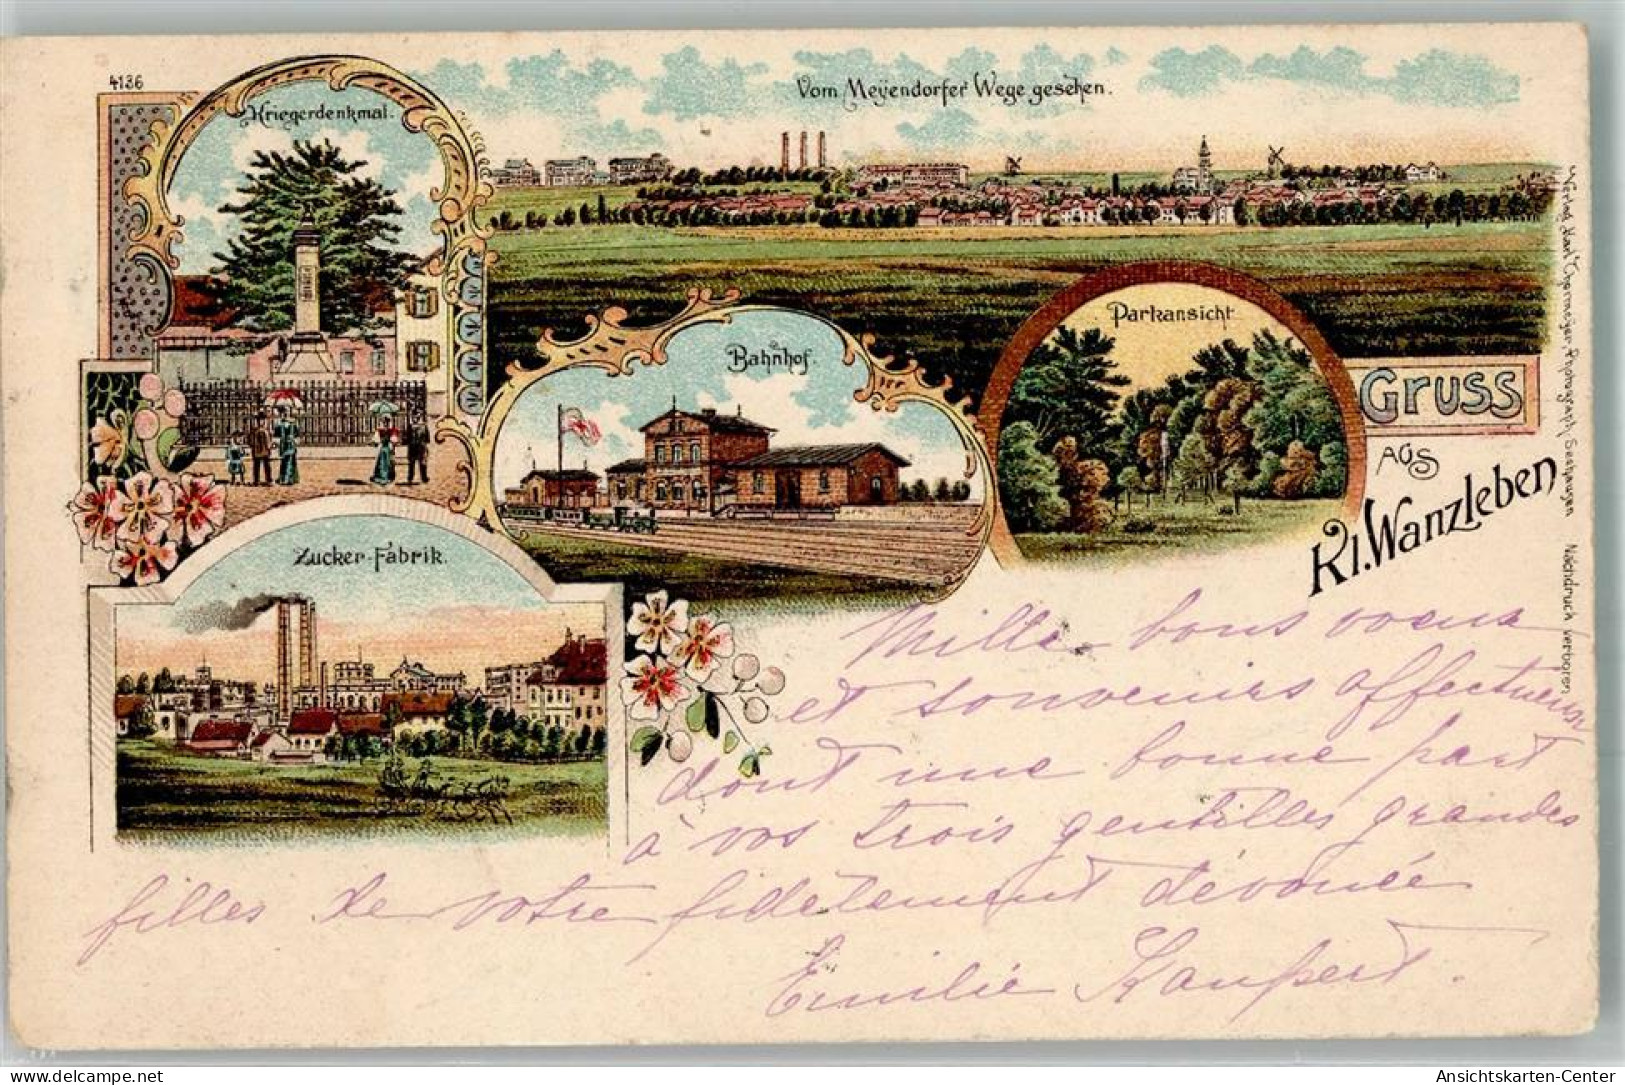 4136
Kriegerdenkmal.
Vom Meÿendorfer Wege gesehen.
Bahnhof.
Parkansicht
Zucker-Fabrik.
GRUSS
AUS
Kl. Wanzleben
Verlag Karl Thormeyer Photograph,
Nachdruck verboten
Mille bons voeux
et souvenirs affectueux
dont une bonne part
à vos trois gentilles grandes
filles de votre fidèlement dévouée
Emilie Kaupert.
Ansichtskarten-Center